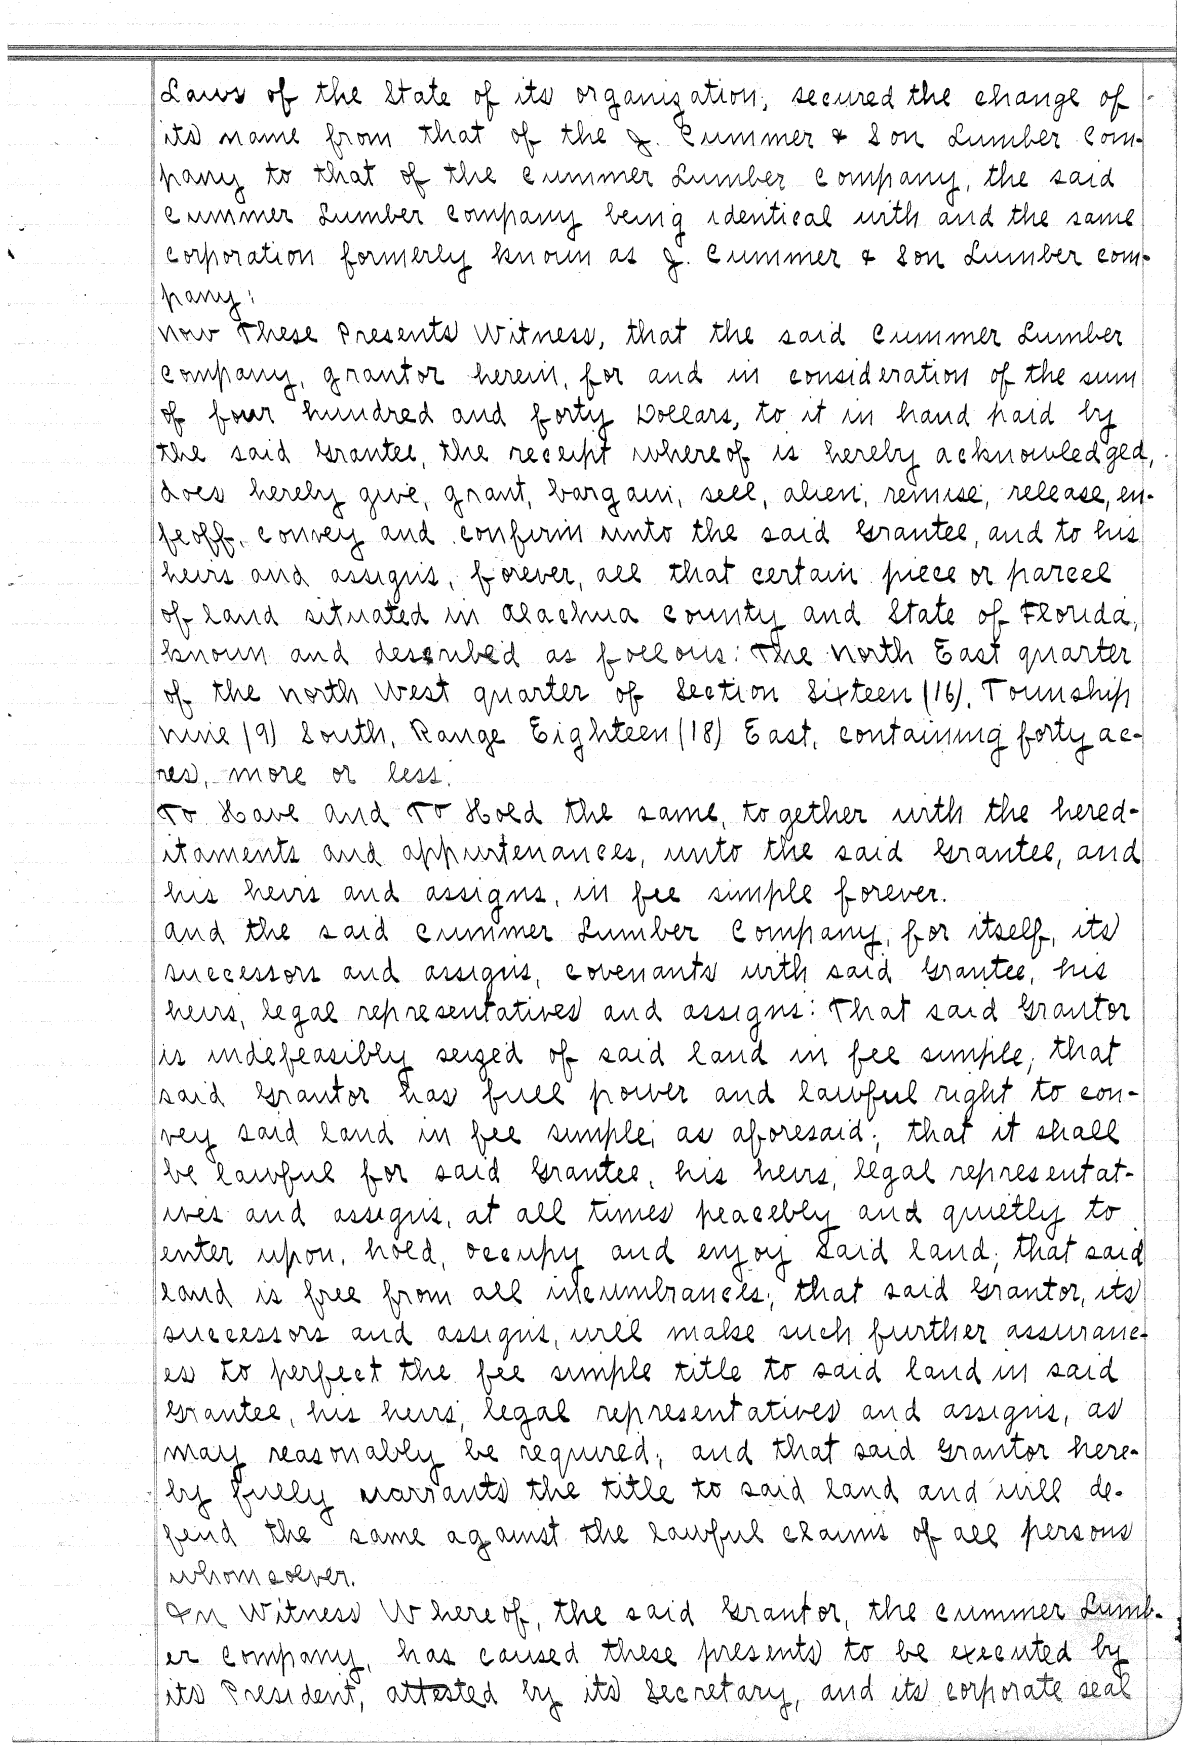 Laws of the State of its organization, secured the change of
its name from that of the J. Cummer & Son Lumber Com-
pany to that of the Cummer Lumber Company, the said
Cummer Lumber Company being identical with and the same
corporation formerly known as J. Cummer & Son Lumber Com-
pany:
Now These Presents Witness, that the said Cummer Lumber
Company, grantor herein, for and in consideration of the sum
of four hundred and forty Dollars, to it in hand paid by
the said Grantee, the receipt whereof is hereby acknowledged,
does hereby give, grant, bargain, sell, alien, remise, release, en-
feoff, convey and confirm unto the said Grantee, and to his
heirs and assigns, forever, all that certain piece or parcel
of land situated in Alachua County and State of Florida,
known and described as follows: The North East quarter
of the North West quarter of Section Sixteen (16), Township
nine (9) South, Range Eighteen (18) East, containing forty ac-
res, more or less.
To Have and To Hold the same, together with the hered-
itaments and appurtenances, unto the said Grantee, and
his heirs and assigns, in fee simple forever.
And the said Cummer Lumber Company, for itself, its
successors and assigns, covenants with said Grantee, his
heirs, legal representatives and assigns: That said Grantor
is indefeasibly seized of said land in fee simple; that
said Grantor has full power and lawful right to con-
vey said land in fee simple, as aforesaid; that it shall
be lawful for said Grantee, his heirs, legal representat-
ives and assigns, at all times peacebly and quietly to
enter upon, hold, occupy and enjoy said land; that said
land is free from all incumbrances; that said Grantor, its
successors and assigns, will make such further assuranc-
es to perfect the fee simple title to said land in said
Grantee, his heirs, legal representatives and assigns, as
may reasonably be required; and that said Grantor here-
by fully warrants the title to said land and will de-
fend the same against the lawful claims of all persons
whomsoever.
In Witness Whereof, the said Grantor, the Cummer Lumb-
er Company, has caused these presents to be executed by
its President, attested by its Secretary, and its corporate seal